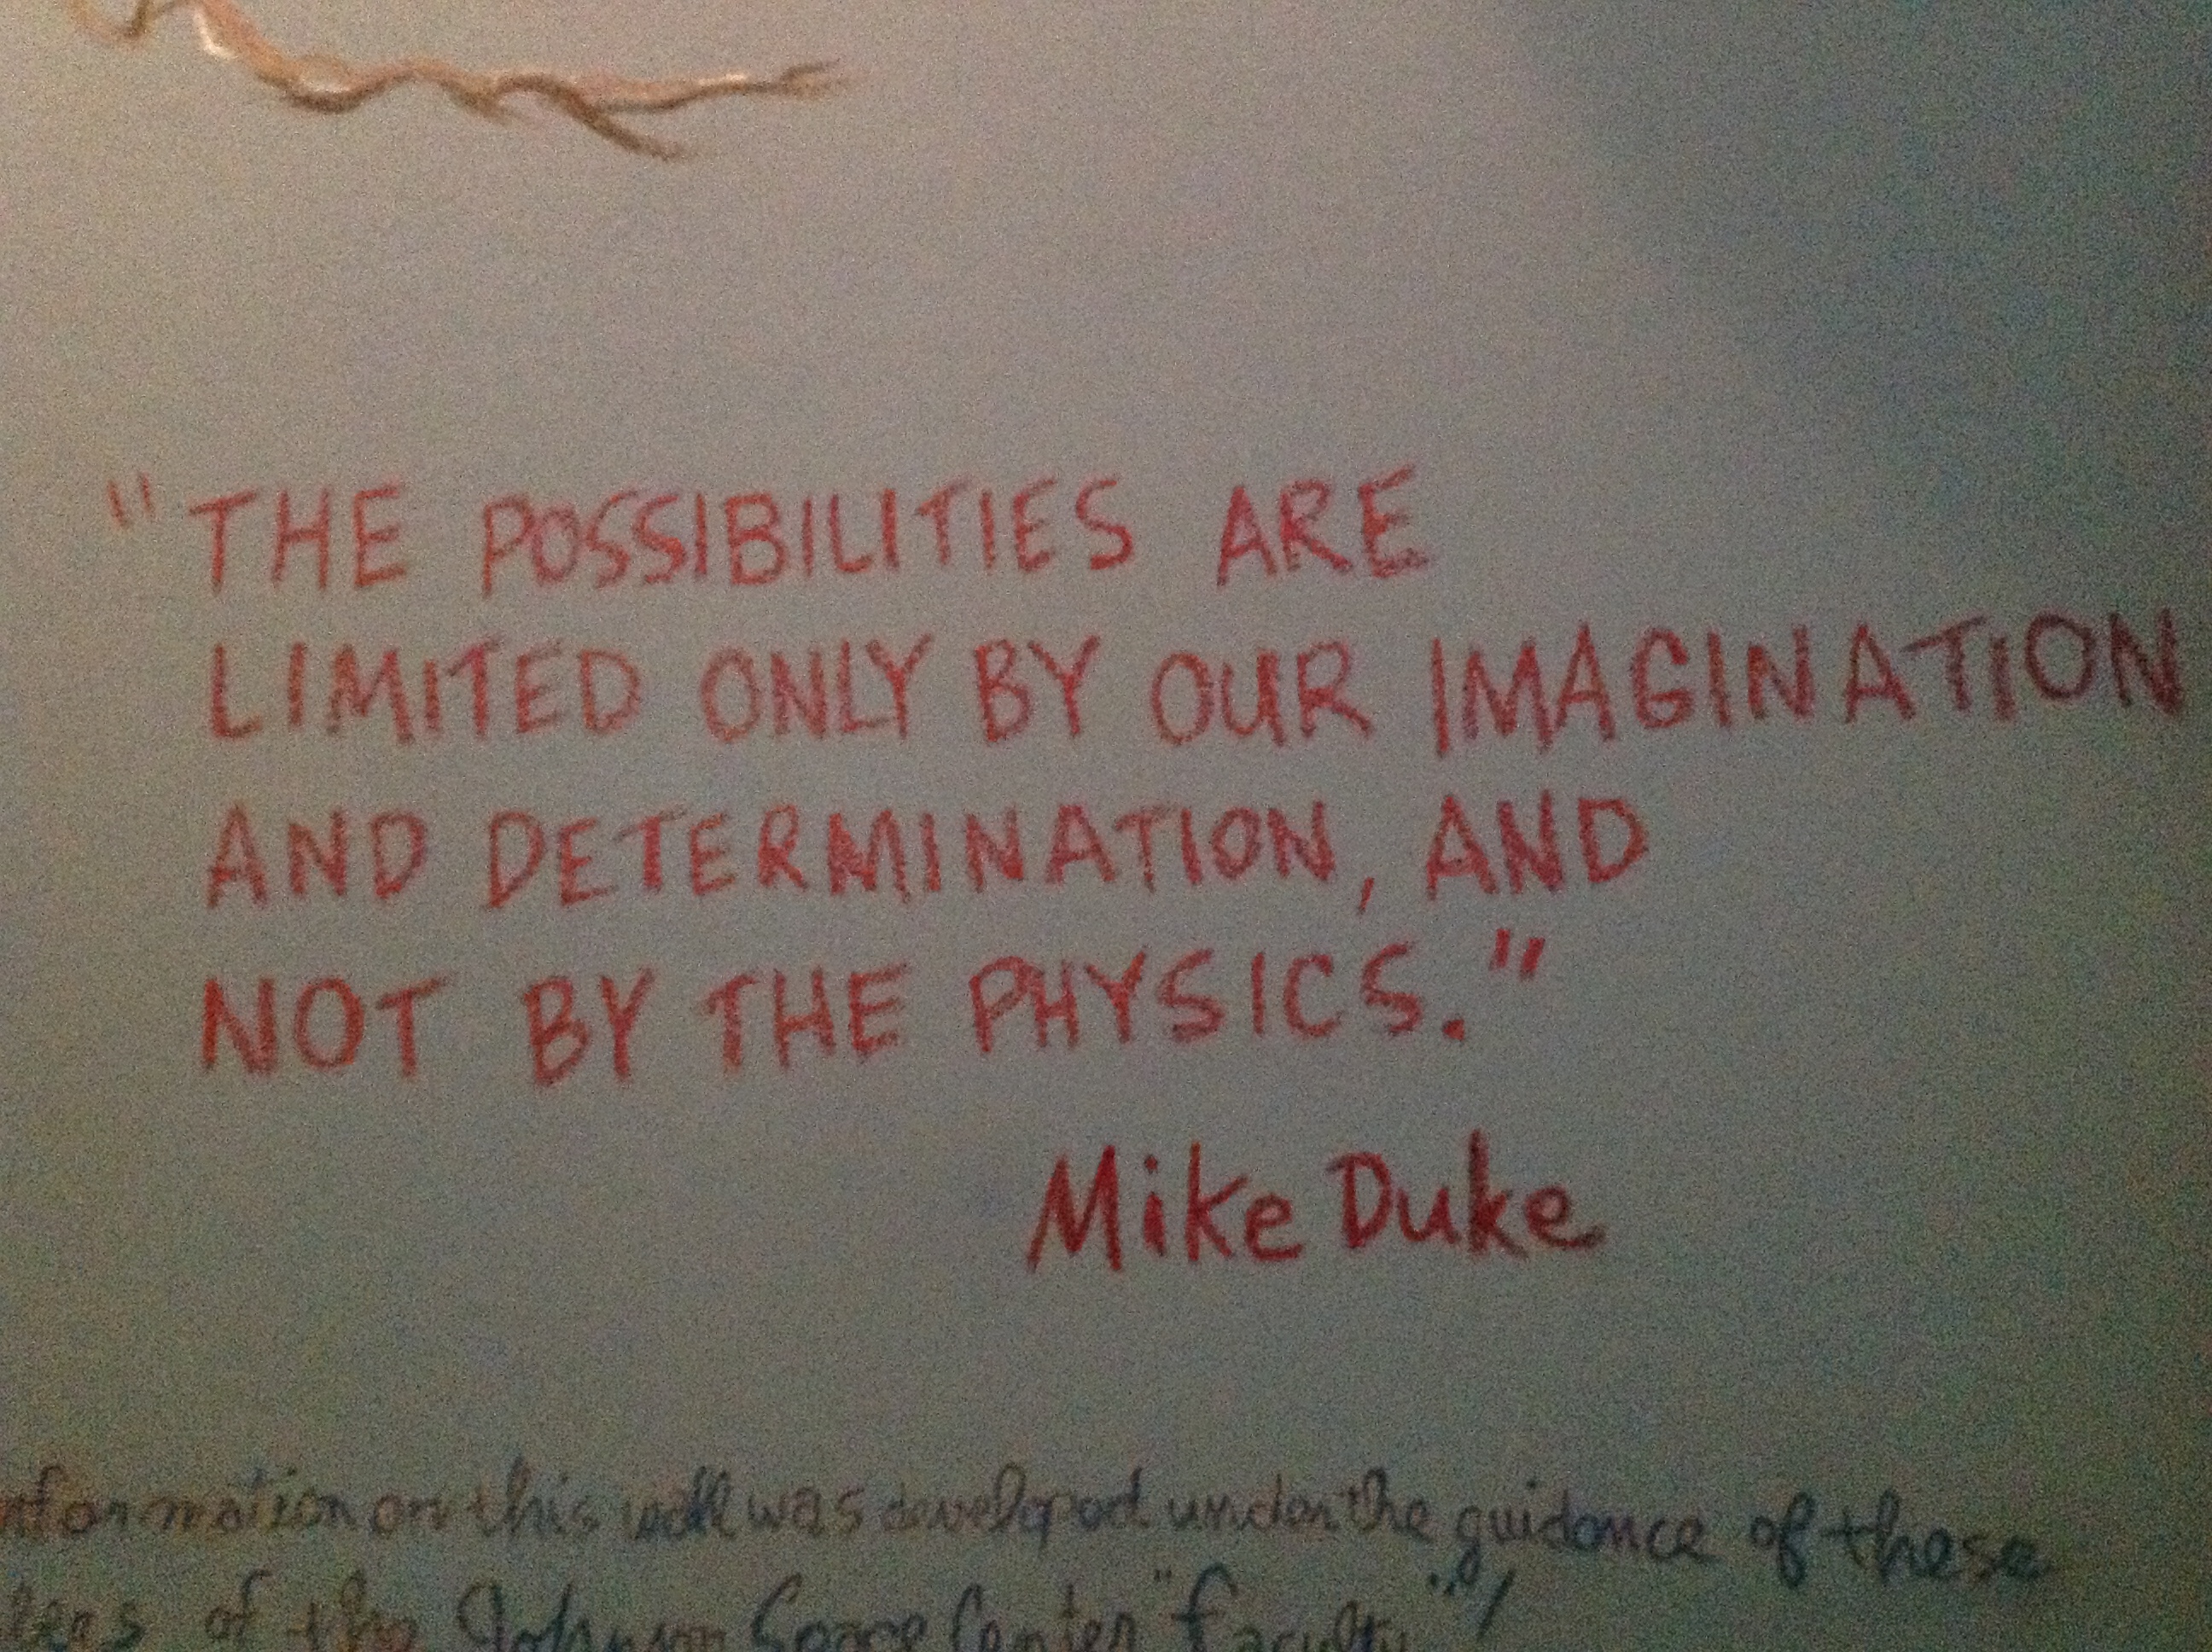 "THE POSSIBILITIES ARE
LIMITED ONLY BY OUR IMAGINATION
AND DETERMINATION, AND
NOT BY THE PHYSICS."
Mike Duke
nformation on this wall was developed under the guidance of these
of the Johnson Space Center "faculty"!